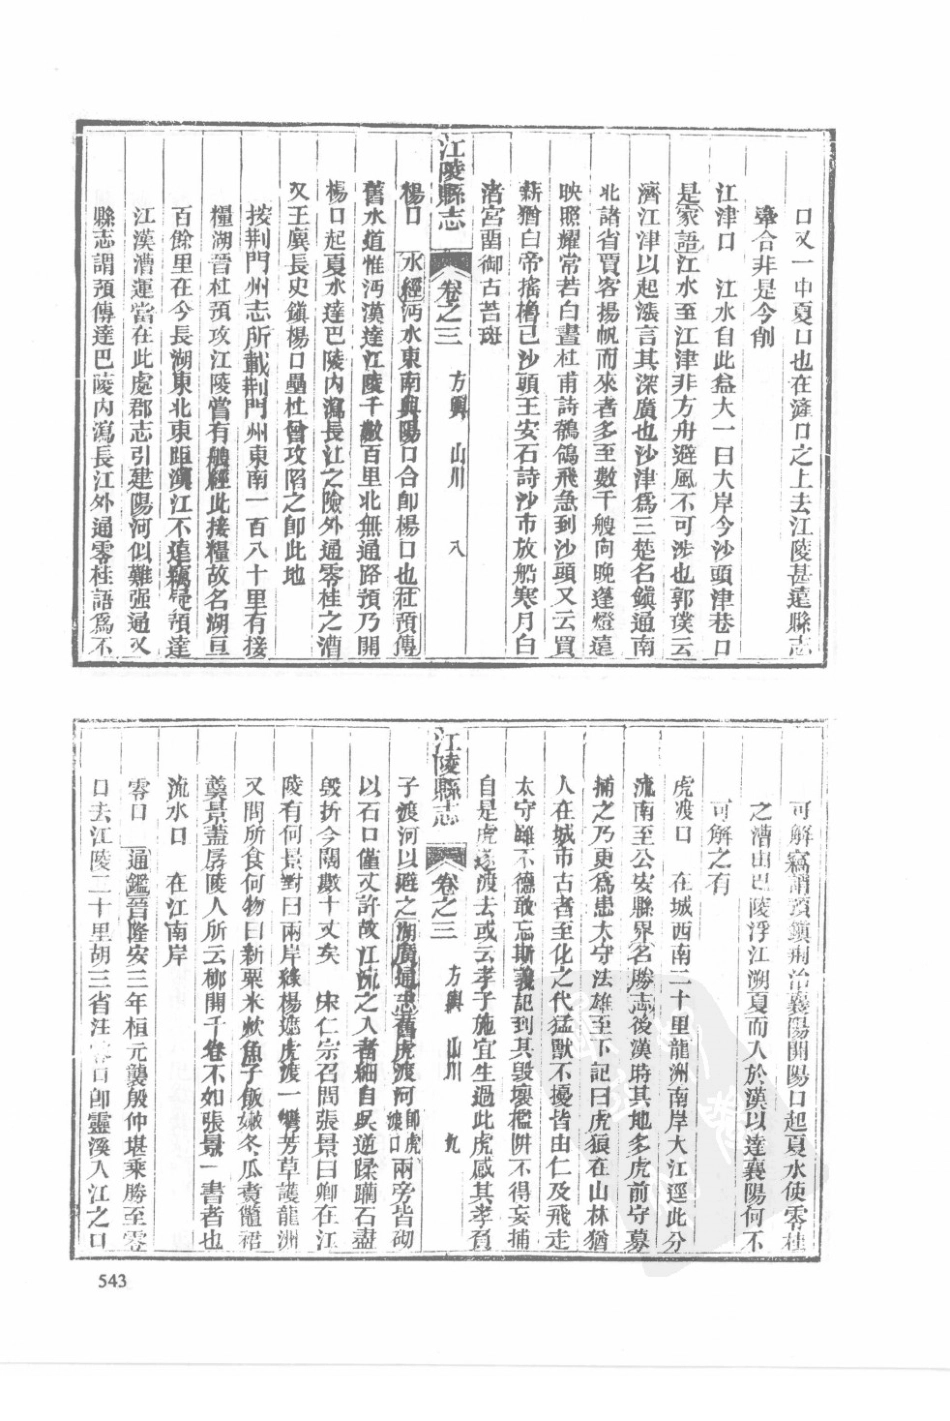 口又一中夏口也在滻口之上去江陵甚遠縣志
牽合非是今削
江津口　江水自此益大一曰大岸今沙頭津巷口
是家語江水至江津非方舟避風不可涉也郭璞云
濟江津以起漲言其深廣也沙津爲三楚名鎮通南
北諸省賈客揚帆而來者多至數千艘向晚蓬燈遠
映照耀常若白晝杜甫詩鶺鴒飛急到沙頭又云買
薪猶白帝搖櫓已沙頭王安石詩沙市放船寒月白
渚宮畱御古苔斑
江陵縣志　卷之三　方輿　山川　八
楊口　水經沔水東南與陽口合卽楊口也杜預傳
舊水道惟沔漢達江陵千數百里北無通路預乃開
楊口起夏水達巴陵內瀉長江之險外通零桂之漕
又王廙長史鎮楊口壘杜曾攻陷之卽此地
按荆門州志所載荆門州東南一百八十里有接
糧湖晉杜預攻江陵嘗有艘經此接糧故名湖亘
百餘里在今長湖東北東距漢江不遠竊疑預達
江漢漕運當在此處郡志引建陽河似難强通又
縣志謂預傳達巴陵內瀉長江外通零桂語爲不
可解竊謂預鎮荆治襄陽開陽口起夏水使零桂
之漕由巴陵浮江溯夏而入於漢以達襄陽何不
可解之有
虎渡口　在城西南二十里龍洲南岸大江逕此分
流南至公安縣界名勝志後漢時其地多虎前守募
捕之乃更爲患太守法雄至下記曰虎狼在山林猶
人在城市古者至化之代猛獸不擾皆由仁及飛走
太守雖不德敢忘斯義記到其毀壞檻阱不得妄捕
自是虎遂渡去或云孝子施宜生過此虎感其孝負
江陵縣志　卷之三　方輿　山川　九
子渡河以避之湖廣通志舊虎渡河卽虎渡口兩旁皆砌
以石口僅丈許故江流之入者細自吳逆蹂躪石盡
毀折今闊數十丈矣　宋仁宗召問張景曰卿在江
陵有何景對曰兩岸綠楊遮虎渡一灣芳草護龍洲
又問所食何物曰新粟米炊魚子飯嫩冬瓜煑鼈裙
羹景蓋孱陵人所云柳開千卷不如張景一書者也
流水口　在江南岸
零口　通鑑晉隆安三年桓元襲殷仲堪乘勝至零
口去江陵二十里胡三省注零口卽靈溪入江之口
543